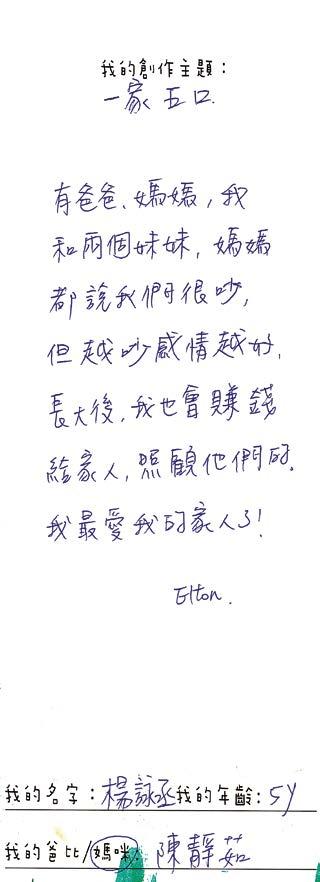 我的創作主題：
一家五口.
有爸爸、媽媽，我
和兩個妹妹，媽媽
都說我們很吵，
但越吵感情越好，
長大後，我也會賺錢
給家人，照顧他們的。
我最愛我的家人了！
Elton.
我的名字：楊詠丞我的年齡：5y
我的爸比/媽咪：陳靜茹